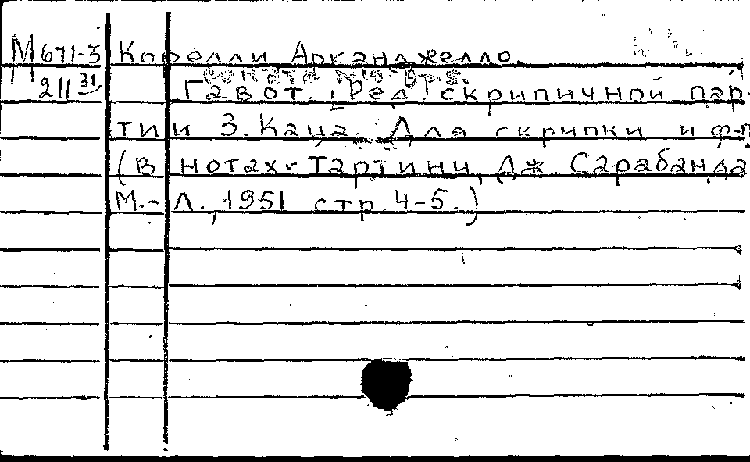 М 671-3 Корелли Арканджелло.
211 31 Гавот. Ред. скрипичной пар-
тии З. Каца. Для скрипки и ф-п
(в нотах: Тартини, Дж Сарабанда
М.-Л., 1951 стр 4-5.)